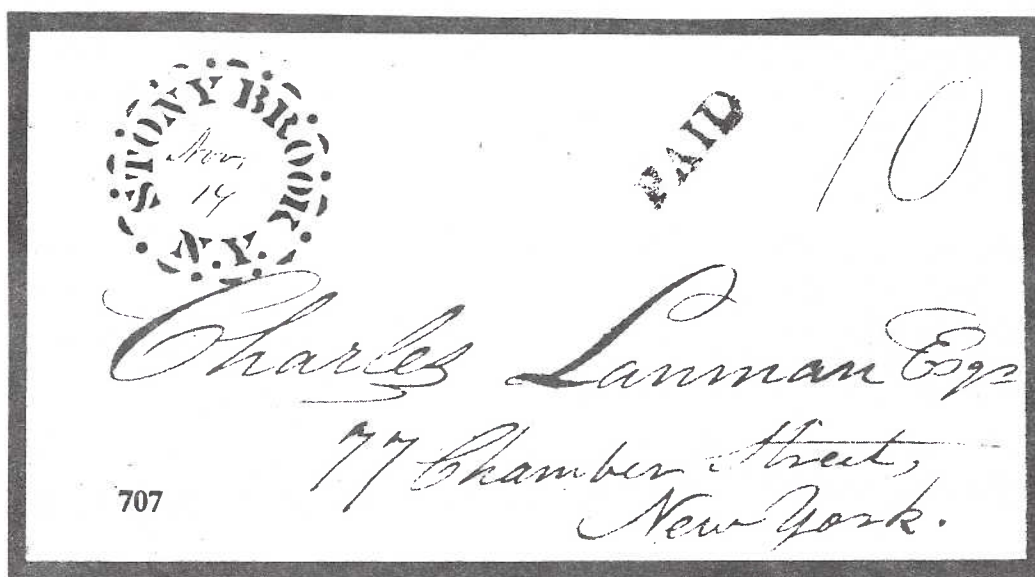 STONY BROOK
Nov,
14
N.Y.
PAID
10
Charles Lanman Esqr
77 Chamber Street,
New York.
707